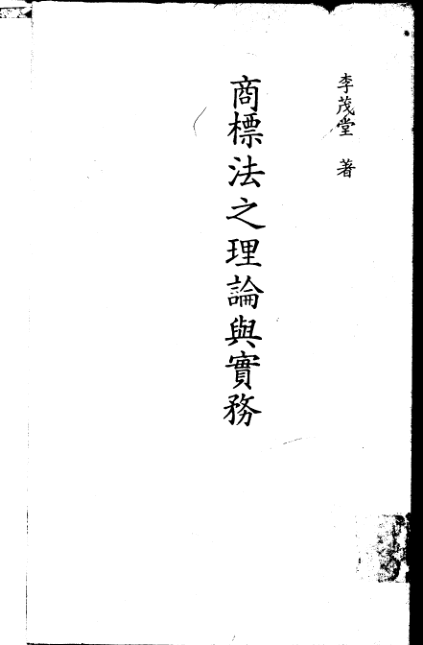 李茂堂 著
商標法之理論與實務